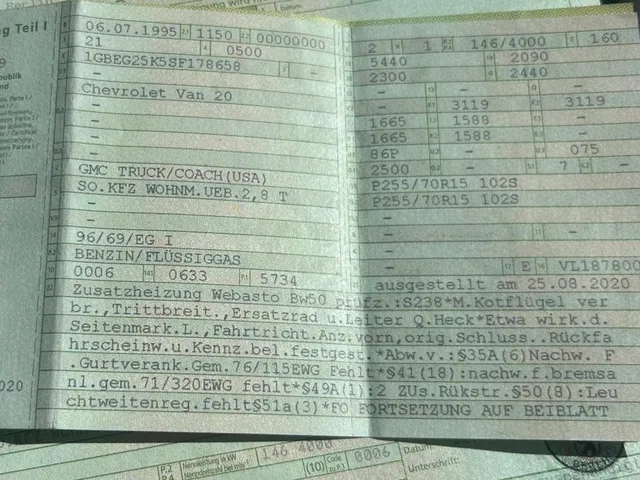 ng Teil I
06.07.1995 2.1 1150 2.2 00000000
21 0500
1GBEG25K5SF178658 -
-
Chevrolet Van 20
-
-
-
GMC TRUCK/COACH(USA)
SO.KFZ WOHNM.UEB.2,8 T
-
-
96/69/EG I
BENZIN/FLÜSSIGGAS
0006 14.1 0633 P.1 5734
2 1 146/4000 160
5440 2090
2300 2440
- - -
- 3119 3119
1665 1588 -
1665 1588 -
86P - 075
2500 - 7 -
P255/70R15 102S
P255/70R15 102S
-
- -
-
- E VL187800
ausgestellt am 25.08.2020
Zusatzheizung Webasto Bw50 prüfz.:S238*M.Kotflügel ver
br.,Trittbreit.,Ersatzrad u.Leiter Q.Heck*Etwa wirk.d.
Seitenmark.L.,Fahrtricht.Anz.vorn,orig.Schluss..Rückfa
hrscheinw.u.Kennz.bel.festgest.*Abw.v.:§35A(6)Nachw.F
.Gurtverank.Gem.76/115EWG Fehlt*§41(18):nachw.f.bremsa
nl.gem.71/320EWG fehlt*§49A(1):2 ZUs.Rükstr.§50(8):Leu
chtweitenreg.fehlt§51a(3)*FO FORTSETZUNG AUF BEIBLATT
020
P.2 P.4 Nennleistung in kW Nenndrehzahl bei min-1 146 4000 (10) Code zu P.3 0006 Datum:
Unterschrift: